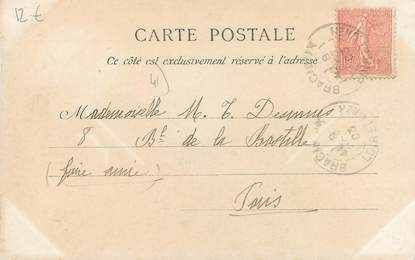 12 €
CARTE POSTALE
Ce côté est exclusivement réservé à l'adresse
Mademoiselle M. T.
8 Bd de la Bastille
(faire suivre)
Paris